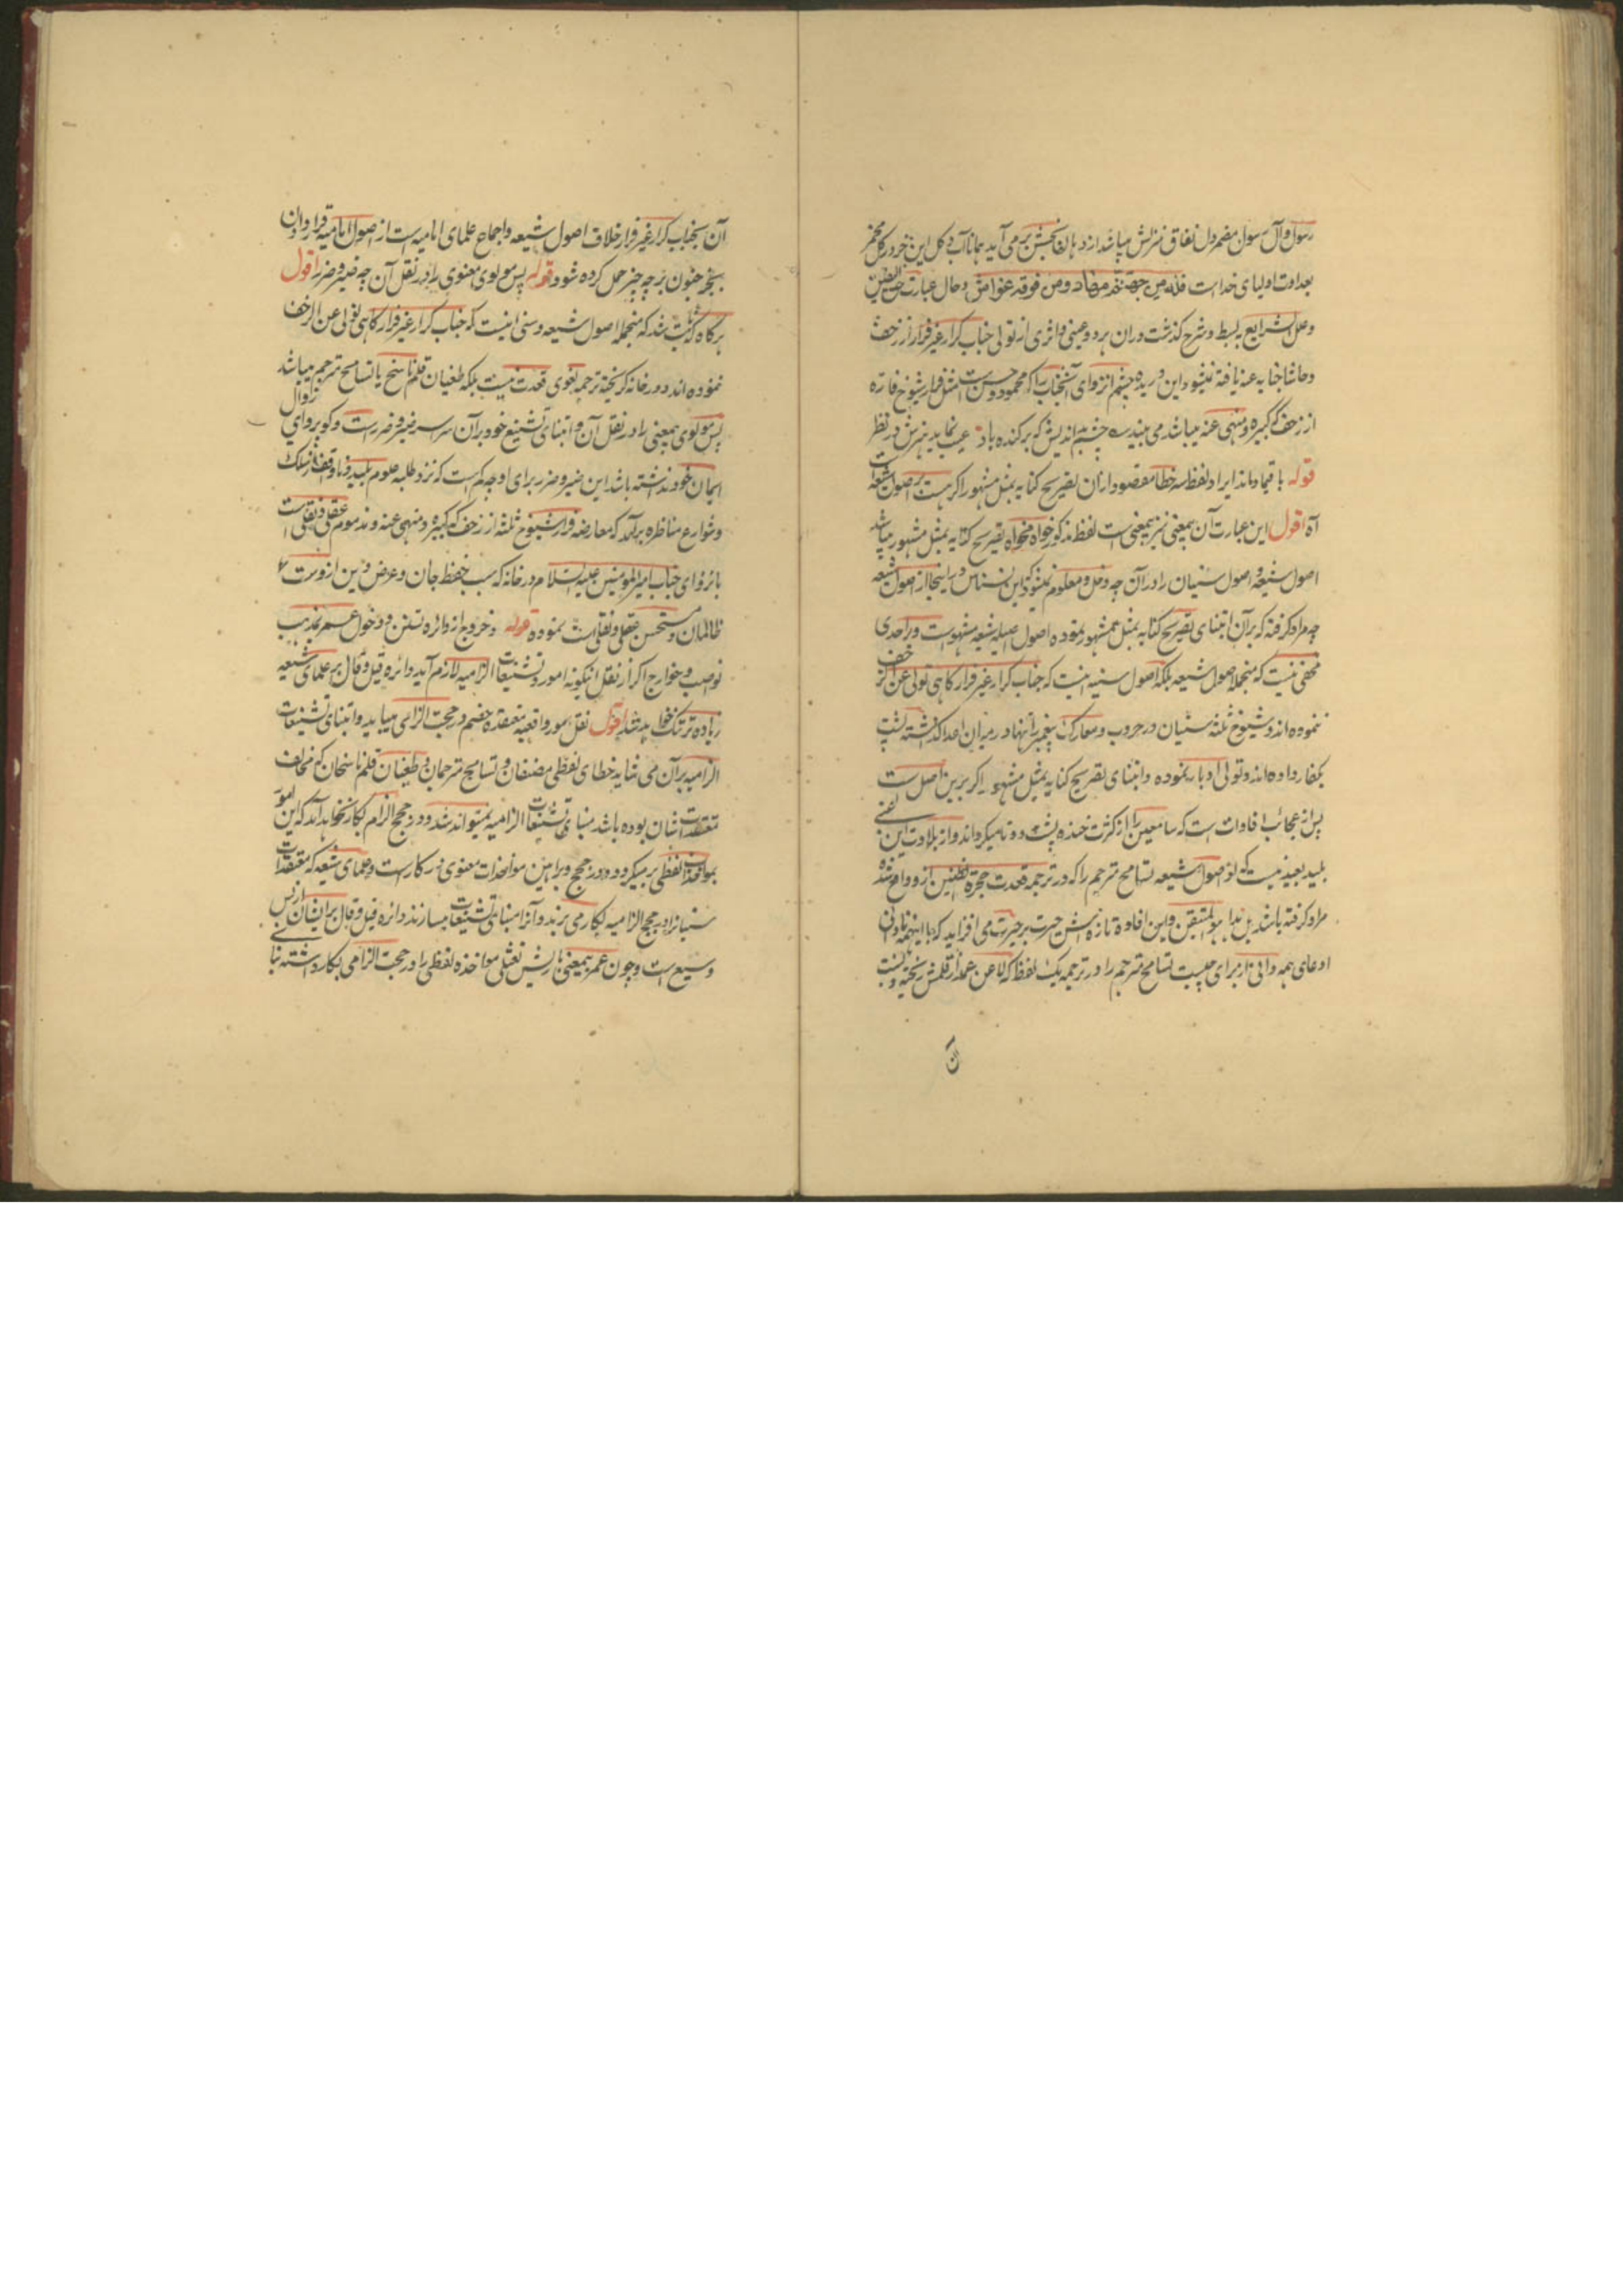 رسول و آل رسول مضمر دل نفاق منزلش میباشد از دهان برمی آید همانا آب و کل این
بعداوت اولیای خداست فله من جهنم مهاد ومن فوقه غواش و حال عبارت حق الیقین
وعلل الشرایع ببسط و شرح گذشت و ران هر دو عینی و اثری از تولی جناب کرار غیر فرار از زحف
و حاشا جنابه عنه یافته نمیشود این دریده چشم انزوای آنجناب را که محمود و حسن است مثل فرار شیوخ فاره
از زحف که کبیره و منهی عنه میباشد می بیند ے چشم بداندیش که برکنده باد عیب نماید هنرش در نظر
قوله باقیماند ایراد لفظ سه خطا مقصود ازان تصریح کنایه بمثل مشهور اکر هست بر اصول شیعه است
آه اقول این عبارت آن بیمعنی نیز بیمعنی است لفظ مذکور خواه مخواه تصریح کنایه بمثل مشهور میباشد
اصول شیعه و اصول سنیان را در آن چه دخل و معلوم نمیشود که این نسناس در اینجا از اصول شیعه
چه مراد کرفته که بر آن ابتنای تصریح کنایه بمثل مشهور نموده اصول اصیله شیعه مشهور است و بر احدی
مخفی نیست که منجمله اصول شیعه بلکه اصول سنیه اینست که جناب کرار غیر فرار کاهی تولی عن الزحف
ننموده اند و شیوخ ثلثه سنیان در حروب و معارک پیغمبر را تنها در میان اعدا گذاشته پشت
بکفار داده اند و تولی ادبار نموده و ابتنای تصریح کنایه بمثل مشهور اکر برین اصل است
پس از عجائب افادات است که سامعین را از کثرت خنده پشت دوتا میکرداند و از بلادت این غبی
بلید بعید نیست که از اصول شیعه تسامح مترجم را که در ترجمه قعدت حجرة الظنین از و واقع شده
مراد کرفته باشد پس بدا هو المتیقن و این افاده تازه اش حیرت بر حیرت می افزاید که با اینهمه نادانی
ادعای همه دانی از برای چیست تسامح مترجم را در ترجمه یک لفظ که لا عن عمد از قلمش ریخته و نسبت
آن
آن بجناب کرار غیر فرار خلاف اصول شیعه و اجماع علمای امامیه است از اصول امامیه قرار دادن
بجز جنون بر چه چیز حمل کرده شود قوله پس مولوی معنوی را در نقل آن چه ضیر و ضرر اقول
هرگاه ثابت شد که منجمله اصول شیعه و سنی اینست که جناب کرار غیر فرار کاهی تولی عن الزحف
ننموده اند و در خانه کریخته ترجمه لغوی قعدت نیست بلکه طغیان قلم ناسخ یا تسامح مترجم میباشد
پس مولوی بیمعنی را در نقل آن و ابتنای تشنیع خود بر آن سراسر ضیر و ضرر است و کو پروای زوال
ایمان خود نداشته باشد این ضیر و ضرر برای او چه کم است که نزد طلبه علوم بلید و ناواقف از مسلک
و شوارع مناظره برآمد که معارضه فرار شیوخ ثلثه از زحف که کبیره و منهی عنه و مذموم عقلی و نقلی است
بانزوای جناب امیر المؤمنین علیه السلام در خانه که سبب حفظ جان و عرض و دین از دست
ظالمان و مستحسن عقلی و نقلی است نموده قوله و خروج از دائره تسنن و دخول عسر بمذهب
نواصب و خوارج اکر از نقل اینکونه امور و تشنیعات الزامیه لازم آید دائره قیل و قال بر علمای شیعه
زیاده تر تنک خواهد شد اقول نقل امور واقعیه معتقده خصم در حجت الزامی میباید و ابتنای تشنیعات
الزامیه بر آن می شاید خطای لفظی مصنفان و تسامح مترجمان و طغیان قلم ناسخان که مخالف
معتقدات شان بوده باشد مبنای تشنیعات الزامیه نمیتواند شد و در حجج الزام بکار نخواهد آمد که این امور
بمواخذات لفظی برمیگردد و در حجج و براهین مواخذات معنوی در کار است و علمای شیعه که معتقدات
سنیانرا در حجج الزامیه بکار می برند و آنرا مبنای تشنیعات میسازند دائره قیل و قال بر ایشان ازبس
وسیع است و چون عمر بیمعنی بارشش نعثلی مواخذه لفظی را در حجت الزامی بکار داشته بنای